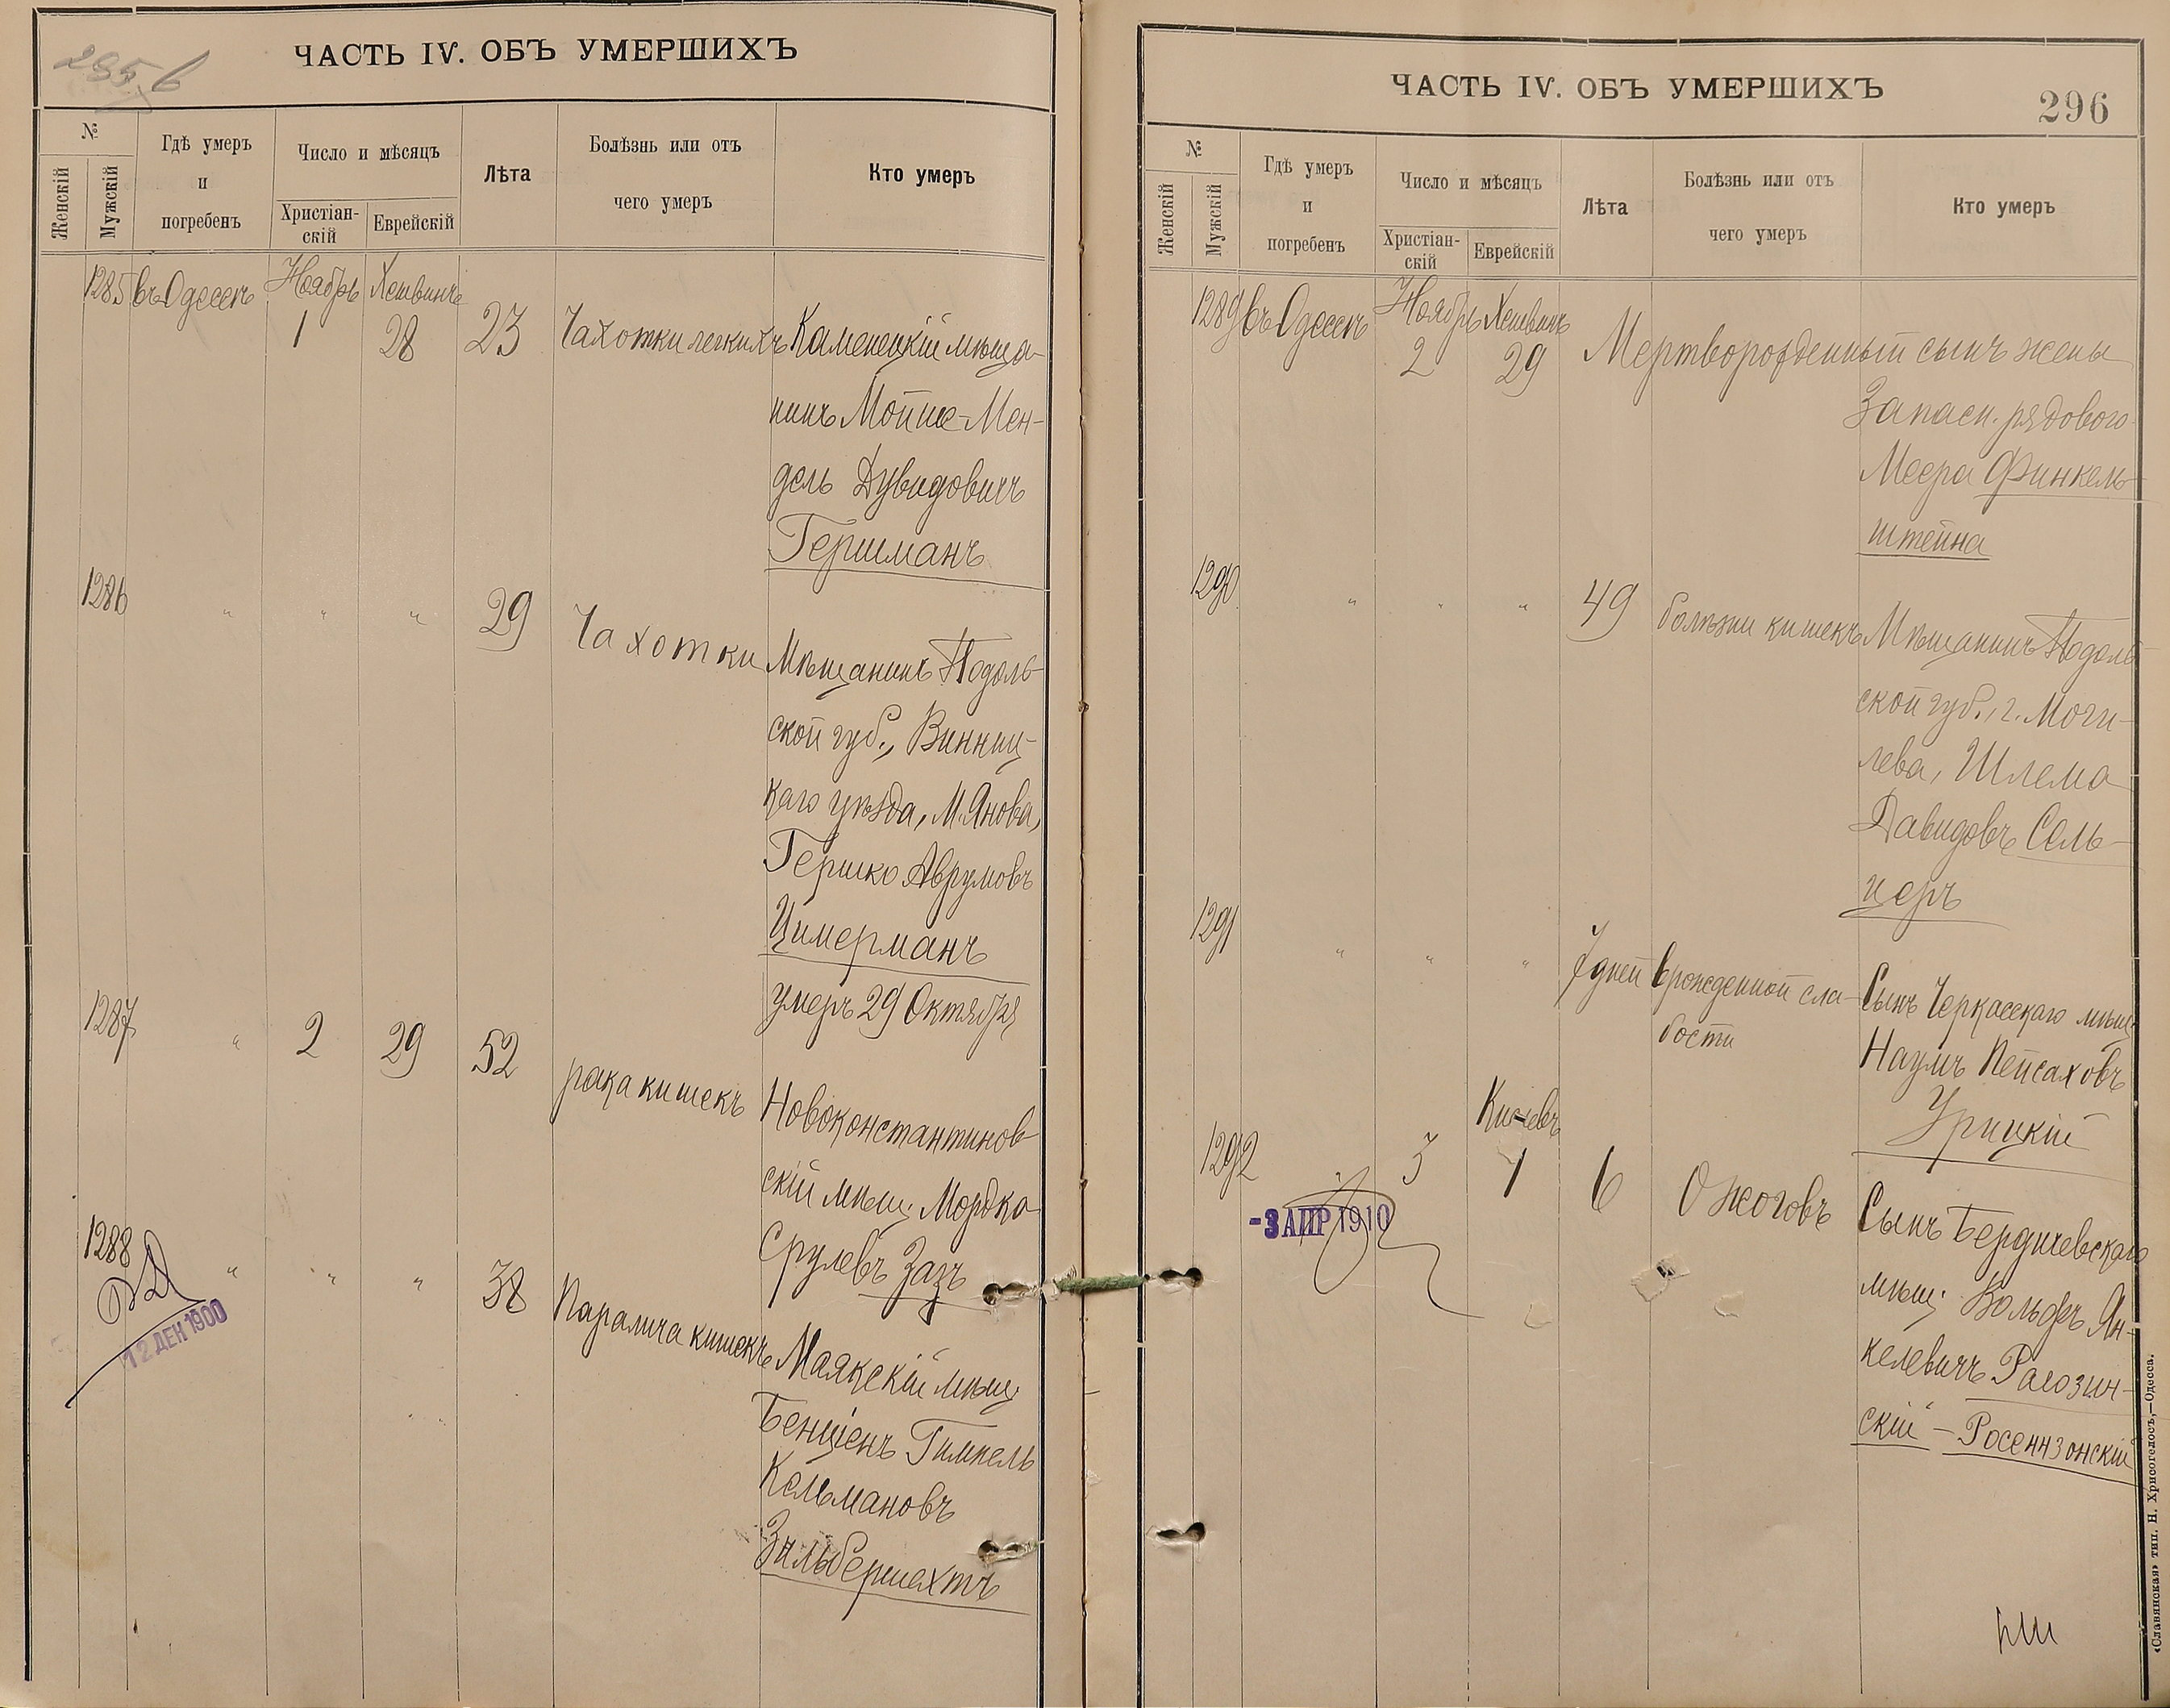 ЧАСТЬ IV. ОБЪ УМЕРШИХЪ
№
Женскій
Мужскій
Гдѣ умеръ
и
погребенъ
Число и мѣсяцъ
Христіан-
скій
Еврейскій
Лѣта
Болѣзнь или отъ
чего умеръ
Кто умеръ
1285 въ Одессѣ Ноябрь Хешвинъ
1 28 23 Чахотки легкихъ Каменецкій мѣща-
нинъ Мойше-Мен-
дель Дувидовичъ
Гершманъ
1286 " " " 29 Чахотки Мѣщанинъ Подоль-
ской губ., Винниц-
каго уѣзда, М. Янова,
Гершко Аврумовъ
Цимерманъ
умеръ 29 Октября
1287 " 2 29 52 рака кишекъ Новоконстантинов-
скій мѣщ. Мордко
Срулевъ Зазъ
1288 " " " 38 Паралича кишекъ Маякскій мѣщ.
12 ДЕК 1900
Бенціенъ Гимпель
Кельмановъ
Зильбершехтъ
ЧАСТЬ IV. ОБЪ УМЕРШИХЪ
296
№
Женскій
Мужскій
Гдѣ умеръ
и
погребенъ
Число и мѣсяцъ
Христіан-
скій
Еврейскій
Лѣта
Болѣзнь или отъ
чего умеръ
Кто умеръ
1289 въ Одессѣ Ноябрь Хешвинъ
2 29 Мертворожденный сынъ жены
Запасн. рядового
Меера Финкель-
штейна
1290 " " " 49 болѣзни кишекъ Мѣщанинъ Подоль-
ской губ., г. Моги-
лева, Шлема
Давидовъ Сель-
церъ
1291 " " " 7 дней врожденной сла- Сынъ Черкасскаго мѣщ.
бости Наумъ Пейсаховъ
Урицкій
Кислевъ
1292 3 1 6 Ожоговъ Сынъ Бердичевскаго
-3 АПР 1910
мѣщ. Вольфъ Ян-
келевичъ Рагозин-
скій - Росеннзонскій
«Славянская» тип. Н. Хрисогелосъ,—Одесса.